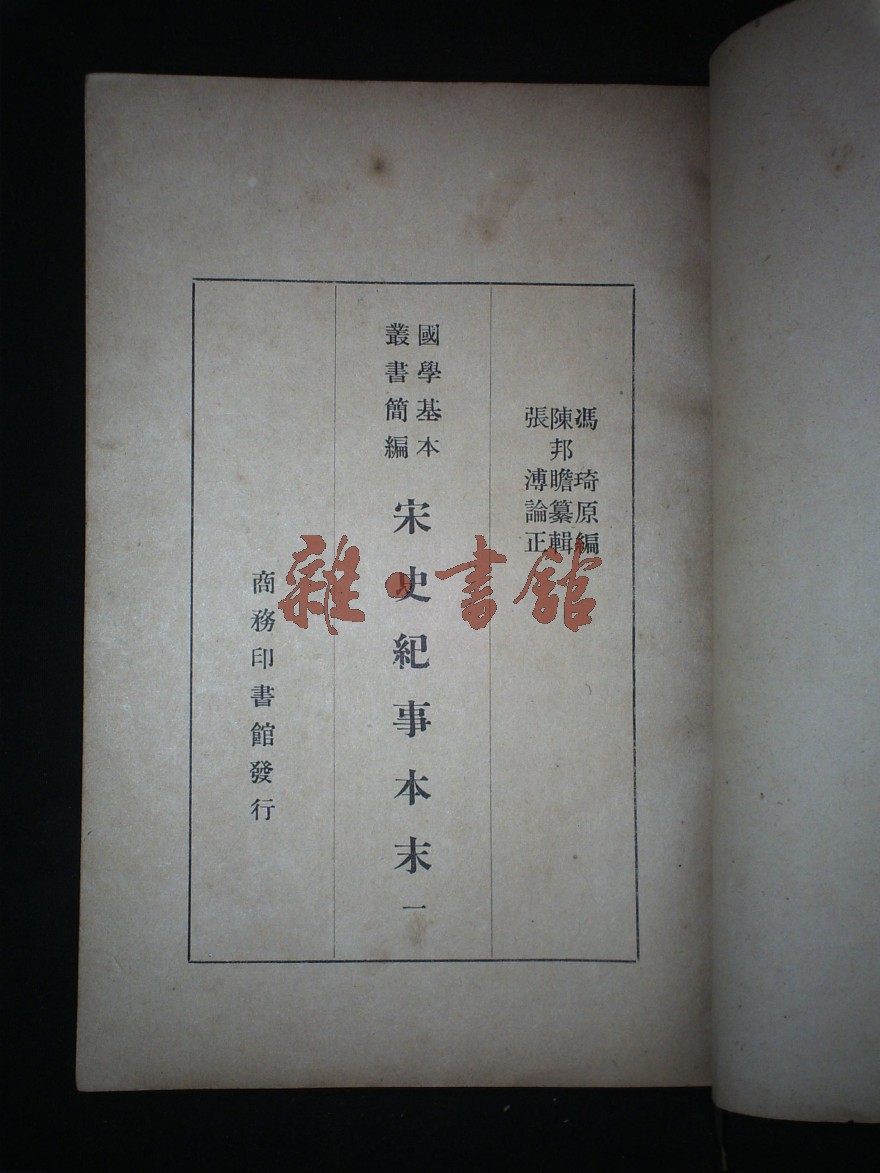 馮琦原編
陳邦瞻纂輯
張溥論正
國學基本
叢書簡編
宋史紀事本末一
商務印書館發行
雜·書館